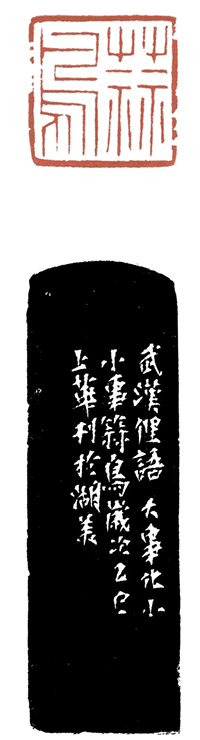 蒜鳥
武漢俚語大事化小
小事蒜鳥歲次乙巳
上華刊於湖美